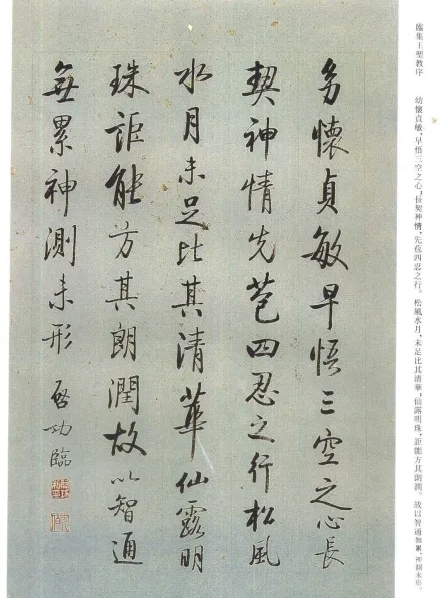 臨集王聖教序
幼懷貞敏，早悟三空之心，長契神情，先苞四忍之行。松風水月，未足比其清華，仙露明珠，詎能方其朗潤。故以智通無累，神測未形。
幼懷貞敏早悟三空之心長
契神情先苞四忍之行松風
水月未足比其清華仙露明
珠詎能方其朗潤故以智通
無累神測未形 啓功臨